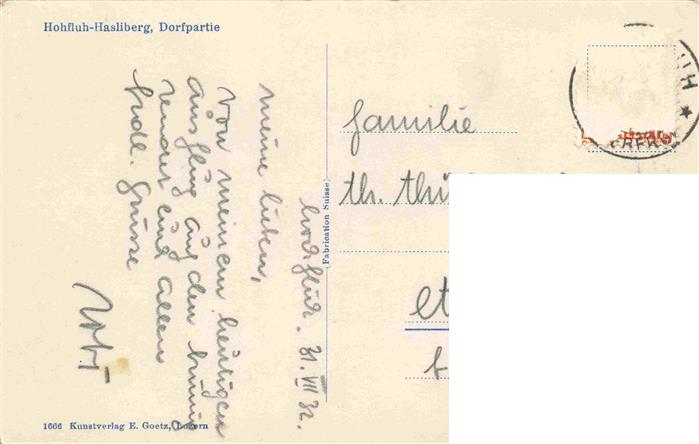 Hohfluh-Hasliberg, Dorfpartie
hohfluh. 31. VII 32.
meine lieben,
von meinem heutigen
ausflug auf den brünig
sendet euch allen
hrdl. grüsse
(Fabrication Suisse)
familie
th.
et
1666 Kunstverlag E. Goetz, Luzern